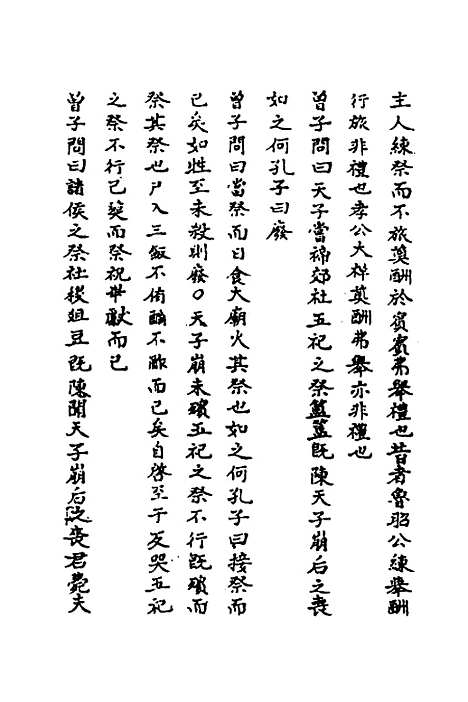 主人練祭而不旅奠酬於賓賓弗舉禮也昔者魯昭公練舉酬
行旅非禮也孝公大祥奠酬弗舉亦非禮也
曾子問曰天子嘗禘郊社五祀之祭簠簋既陳天子崩后之喪
如之何孔子曰廢
曾子問曰當祭而日食大廟火其祭也如之何孔子曰接祭而
已矣如牲至未殺則廢○天子崩未殯五祀之祭不行既殯而
祭其祭也尸入三飯不侑酳不酢而已矣自啓至于反哭五祀
之祭不行已葬而祭祝畢獻而已
曾子問曰諸侯之祭社稷俎豆既陳聞天子崩后之喪君薨夫